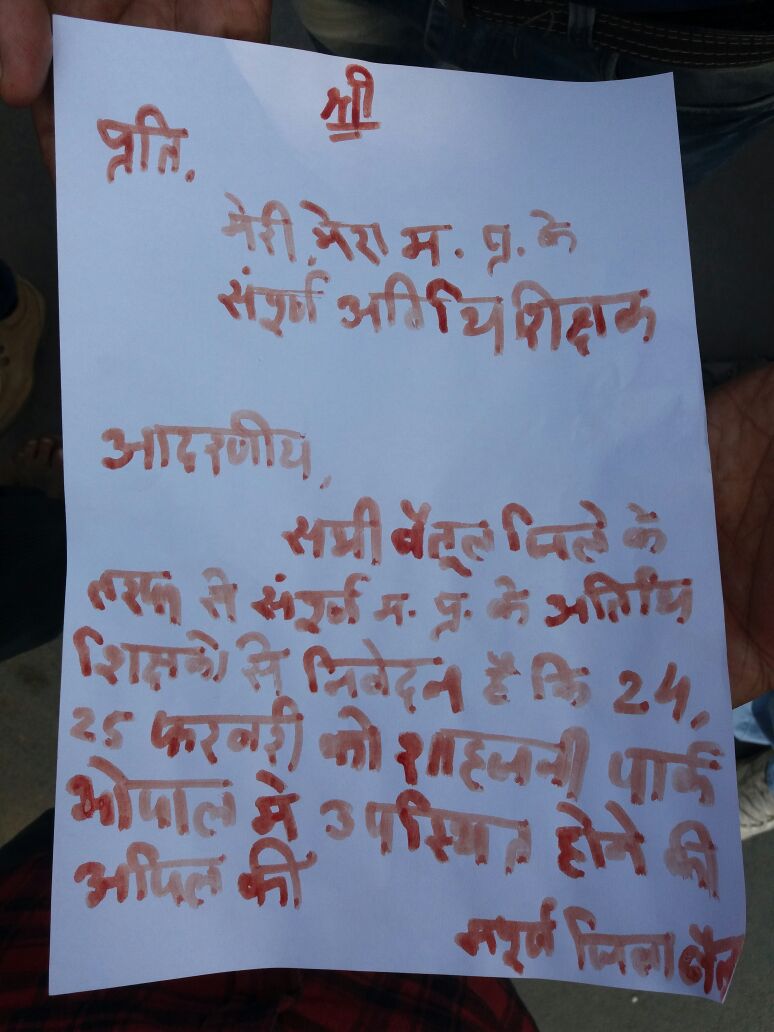 श्री
प्रति,
मेरी, मेरा म. प्र. के
संपूर्ण अतिथि शिक्षक
आदरणीय,
सभी बैतूल जिले के
तरफ से संपूर्ण म. प्र. के अतिथि
शिक्षको से निवेदन है कि 24,
25 फरवरी को शाहजनी पार्क
भोपाल मे उपस्थित होने की
अपिल की
संपूर्ण जिला बैतू